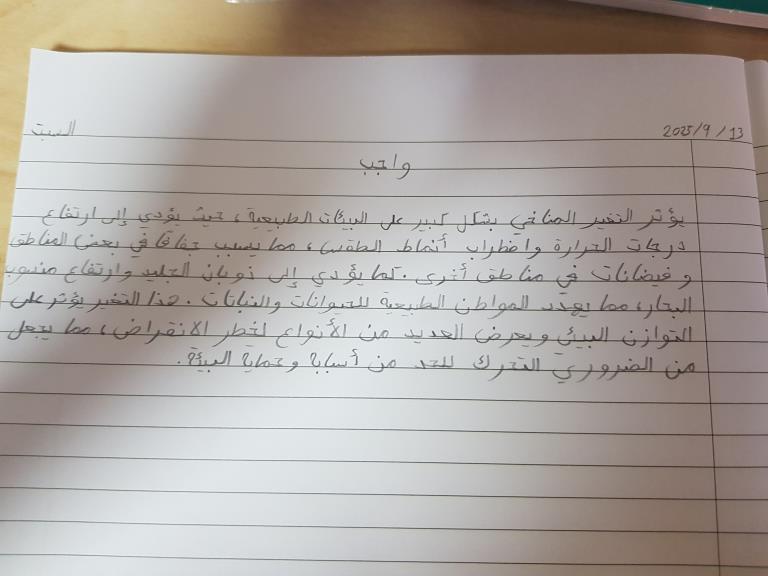 2025/9/13 السبت
واجب
يؤثر التغير المناخي بشكل كبير على البيئات الطبيعية، حيث يؤدي إلى ارتفاع
درجات الحرارة واضطراب أنماط الطقس، مما يسبب جفافا في بعض المناطق
وفيضانات في مناطق أخرى. كما يؤدي إلى ذوبان الجليد وارتفاع منسوب
البحار، مما يهدد المواطن الطبيعية للحيوانات والنباتات. هذا التغير يؤثر على
التوازن البيئي ويعرض العديد من الأنواع لخطر الانقراض، مما يجعل
من الضروري التحرك للحد من أسبابه وحماية البيئة.